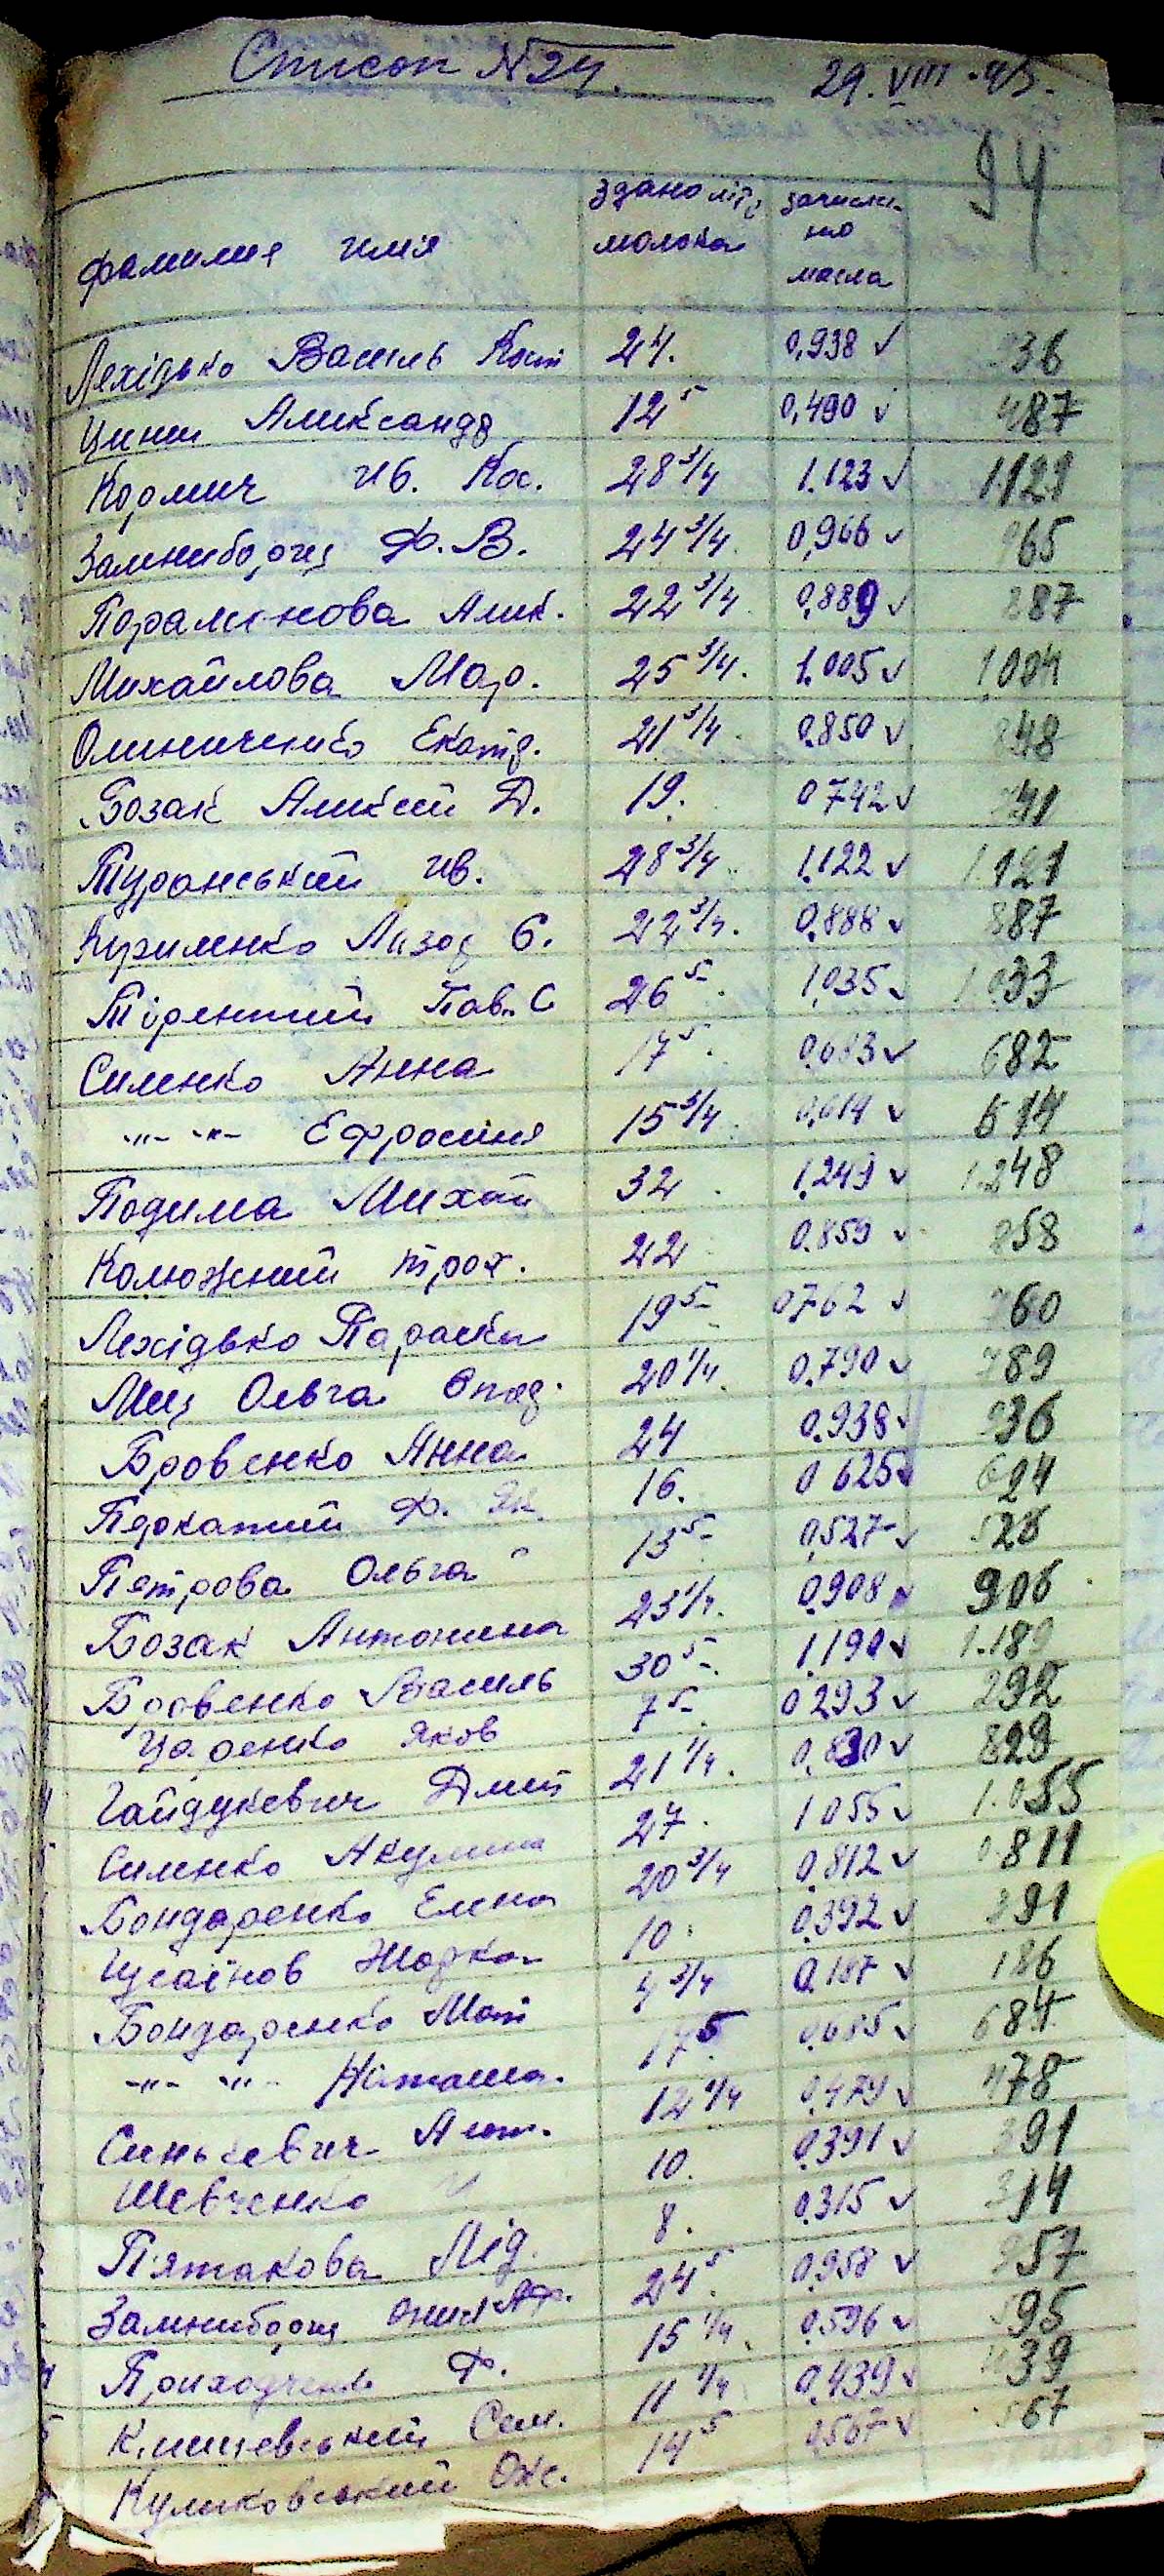 Список №24. 29.VIII-45.
94
фамилия имя здано літр молока зачисле-но масла
Лехідько Василь Кост 24. 0,938 ✓ 936
Александр 12⁵ 0,490 ✓ 487
Кормич Ив. Кос. 28 3/4 1.123 ✓ 1.121
Ф. В. 24 3/4 0,966 ✓ 965
Парамонова Алик. 22 3/4 0,889 ✓ 887
Михайлова Мар. 25 3/4. 1.005 ✓ 1.004
Олиниченко Екатр. 21 3/4 0.850 ✓ 848
Бозак Аликсей Д. 19. 0.742 ✓ 741
Туранський Ив. 28 3/4 1.122 ✓ 1.121
Куриленко Лазар 22 3/4. 0.888 ✓ 887
Пав. С 26⁵ 1.035 ✓ 1.033
Силенко Анна 17⁵. 0.683 ✓ 682
-"- -"- Ефросиня 15 3/4 0.614 ✓ 614
Подима Михай 32 1.249 ✓ 1.248
Калюжний трох. 22 0.859 ✓ 858
Лехідько Параска 19⁵ 0.762 ✓ 760
Ольга 20 1/4. 0.790 ✓ 789
Бровенко Анна 24 0.938 ✓ 936
Ф. Як. 16. 0.625 ✓ 624
Петрова Ольга 13⁵ 0.527 ✓ 526
Бозак Антонина 23 1/4. 0.908 ✓ 906
Бровенко Василь 30⁵. 1.190 ✓ 1.189
Царенко Яков 7⁵. 0.293 ✓ 292
Гайдукевич Дмит 21 1/4. 0.830 ✓ 829
Силенко Акулина 27. 1.055 ✓ 1.055
Бондаренко Елена 20 3/4 0.812 ✓ 0811
10. 0.392 ✓ 391
Бондаренко Мот 4 3/4 0.187 ✓ 186
-"- -"- Наташа. 17⁵. 0.685 ✓ 684
Синькевич Ант. 12 1/4 0.479 ✓ 478
Шевченко 10. 0.391 ✓ 391
Пятакова Лід. 8. 0.315 ✓ 314
24⁵. 0.958 ✓ 957
Приходченко Ф. 15 1/4. 0.596 ✓ 595
Сем. 11 1/4 0.439 ✓ 439
Куликовський 14⁵ 0.567 ✓ 567